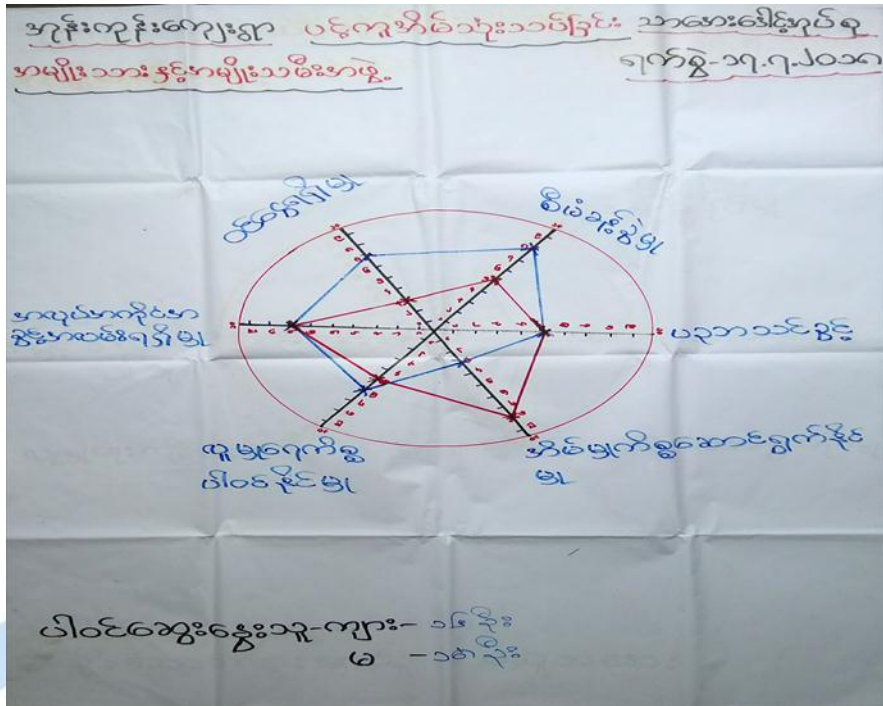 အုန်းကုန်းကျေးရွာ ပင့်ကူအိမ်သုံးသပ်ခြင်း သာအေးဒေါင့်အုပ်စု
အမျိုးသားနှင့်အမျိုးသမီးအဖွဲ့ ရက်စွဲ-၁၇.၇.၂၀၁၈
ဝင်ငွေရရှိမှု
စီမံခန့်ခွဲမှု
အလုပ်အကိုင်အ
ခွင့်အလမ်းရရှိမှု
ပညာသင်ခွင့်
လူမှုရေးကိစ္စ
ပါဝင်နိုင်မှု
အိမ်မှုကိစ္စဆောင်ရွက်နိုင်
မှု
ပါဝင်ဆွေးနွေးသူ-ကျား-
မ -